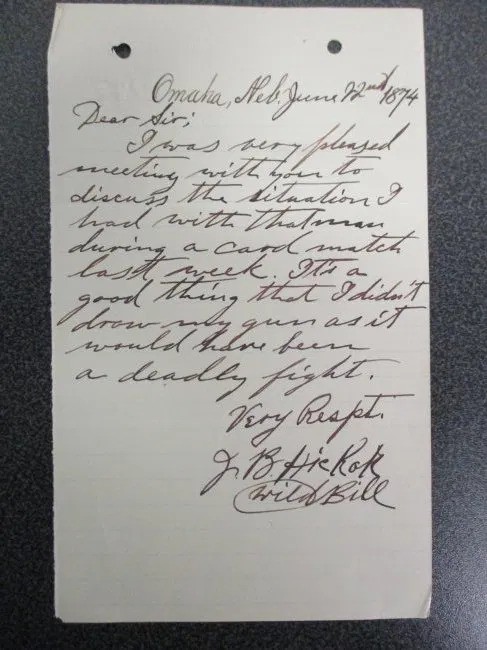 Omaha, Neb. June 22nd/1874
Dear Sir;
I was very pleased
meeting with you to
discuss the situation I
had with that man
during a card match
last week. It's a
good thing that I didn't
draw my gun as it
would have been
a deadly fight.
Very Respt.
J. B. Hickok
Wild Bill